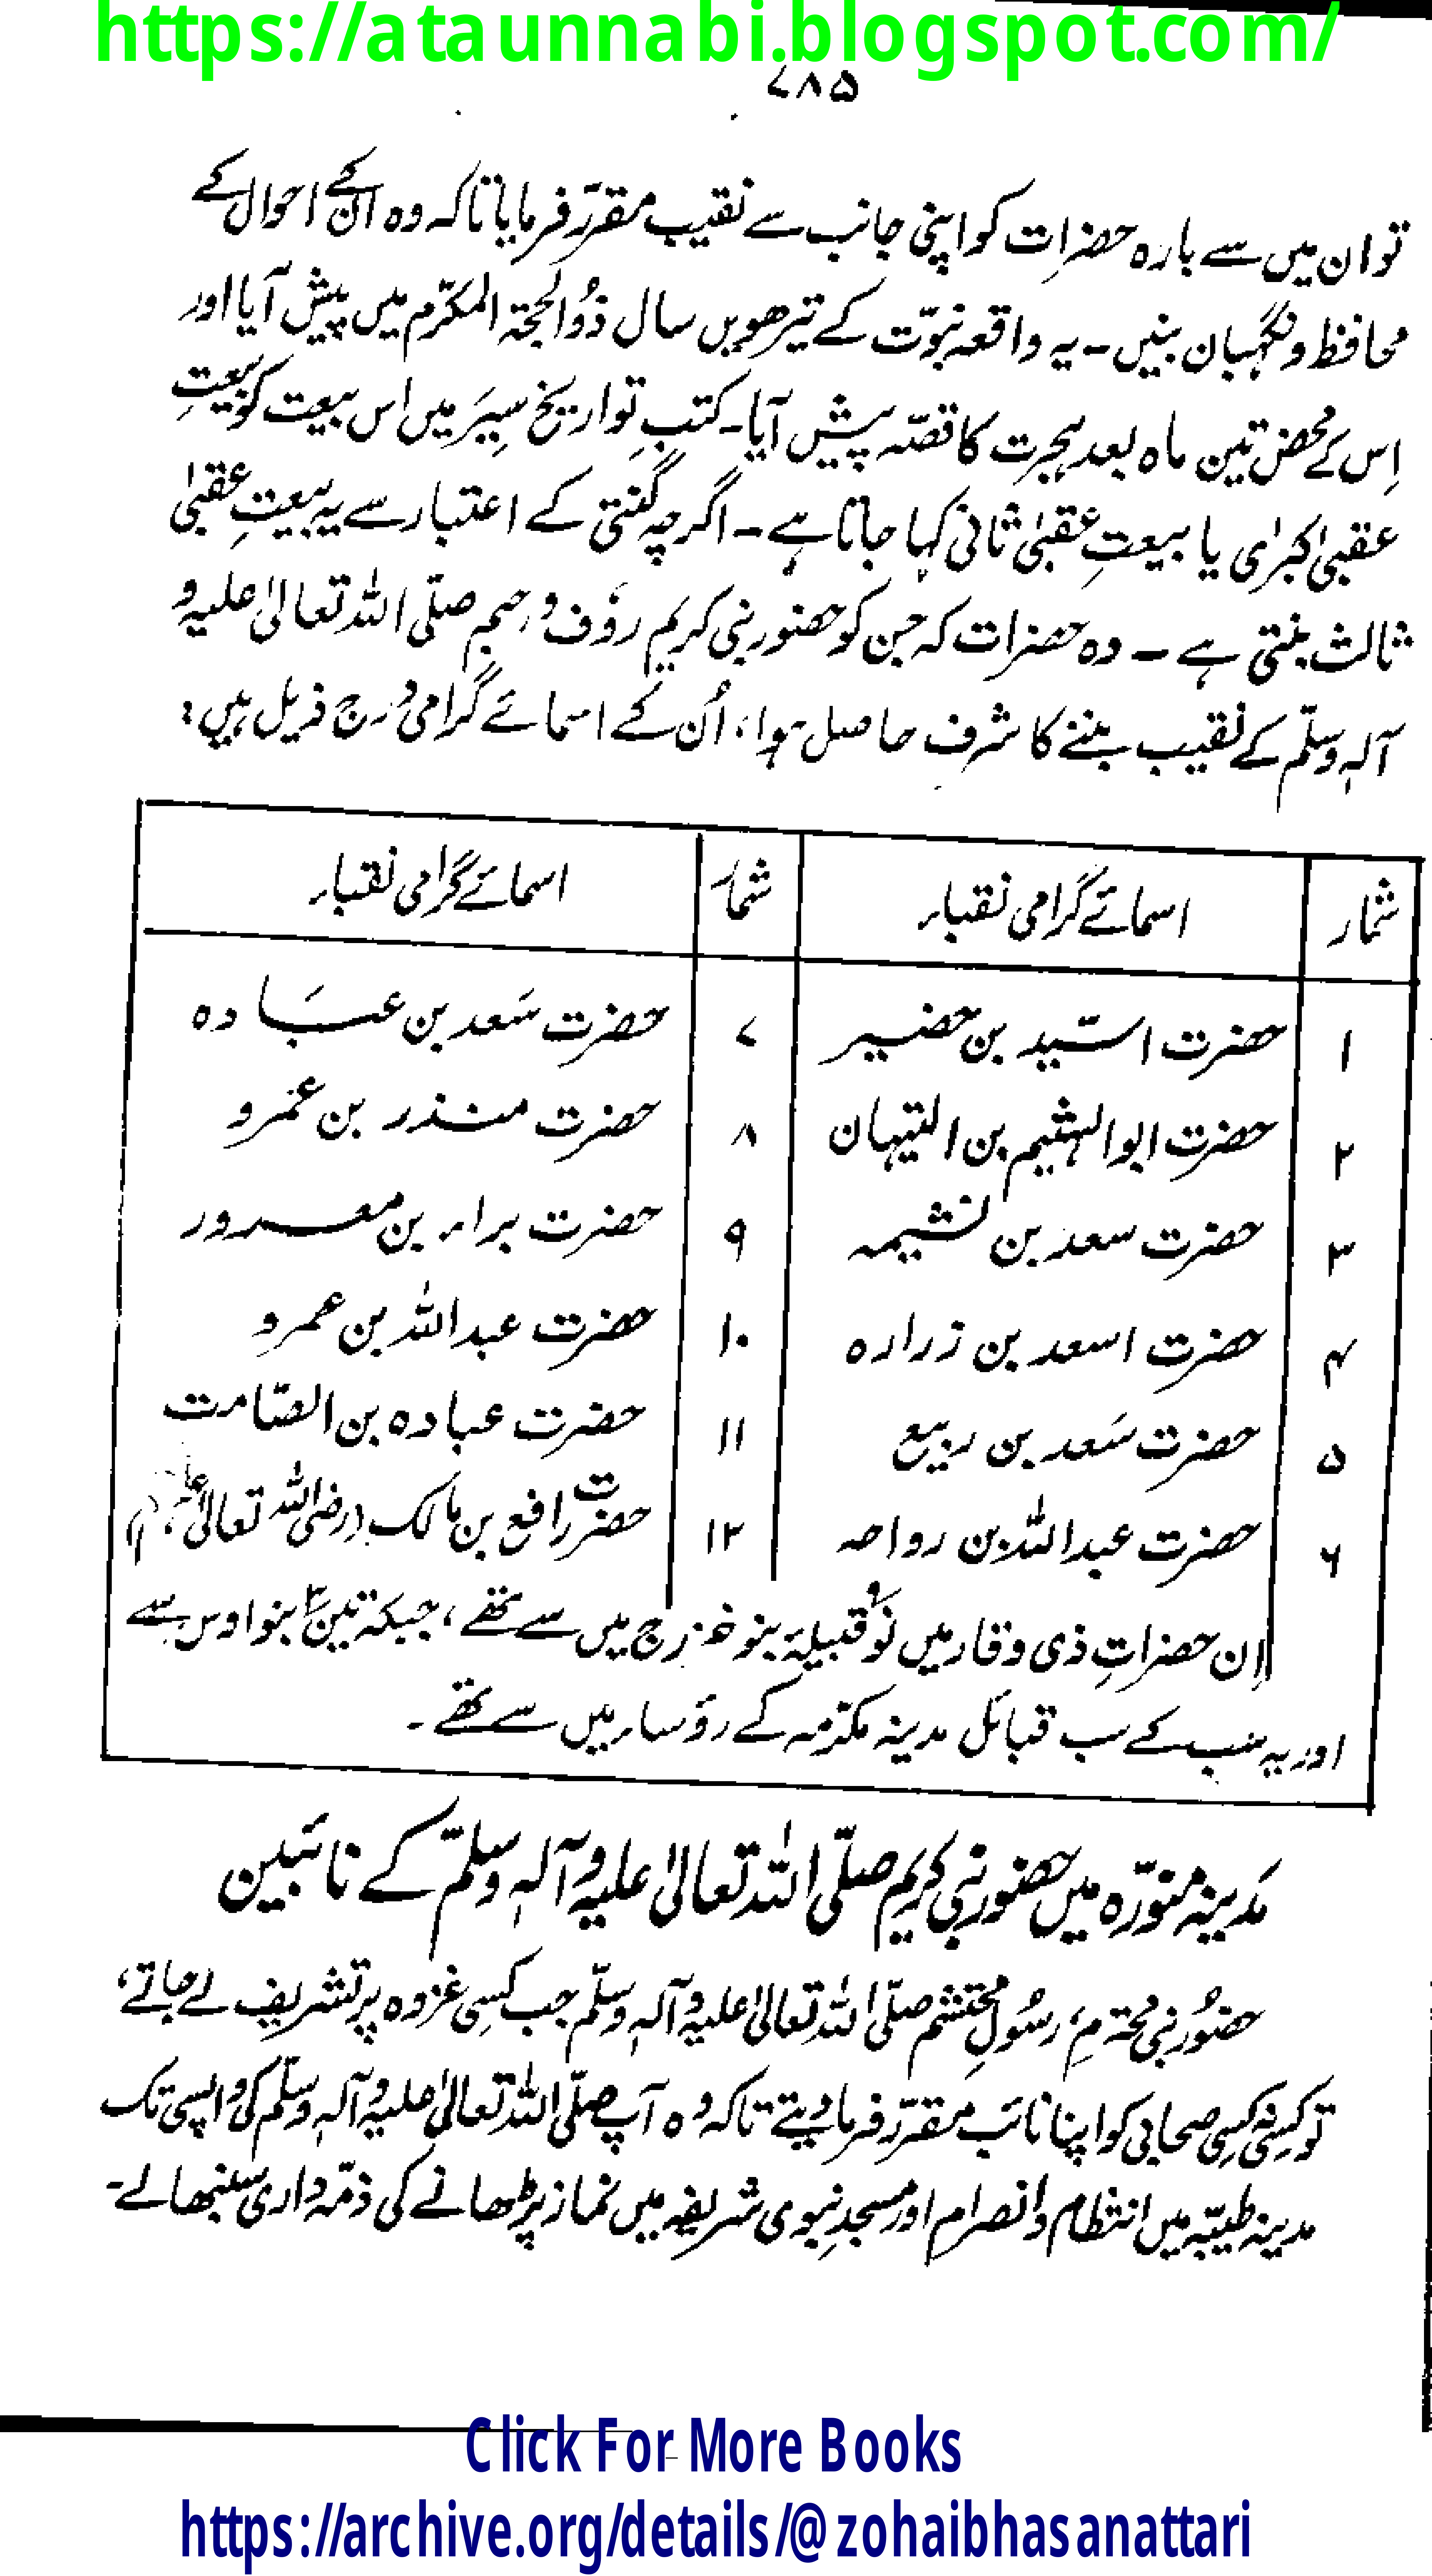 https://ataunnabi.blogspot.com/
۷۸۵
تو ان میں سے بارہ حضرات کو اپنی جانب سے نقیب مقرّر فرمایا تاکہ وہ ان کے احوال کے
محافظ و نگہبان بنیں۔ یہ واقعہ نبوّت کے تیرھویں سال ذُوالحجۃ المکرّم میں پیش آیا اور
اِس کے محض تین ماہ بعد ہجرت کا قصّہ پیش آیا۔ کتبِ تواریخ سِیَر میں اس بیعت کو بیعتِ
عقبیٰ کبرٰی یا بیعتِ عقبیٰ ثانی کہا جاتا ہے۔ اگرچہ گنتی کے اعتبار سے یہ بیعتِ عقبیٰ
ثالث بنتی ہے۔ وہ حضرات کہ جن کو حضور نبی کریم رؤف و رحیم صلّی اللہ تعالیٰ علیہ و
آلہٖ وسلّم کے نقیب بننے کا شرف حاصل ہوا، اُن کے اسمائے گرامی درج ذیل ہیں:
شمار اسمائے گرامی نقباء شمار اسمائے گرامی نقباء
۱ حضرت اسیّد بن حضیر ۷ حضرت سَعد بن عبَادہ
۲ حضرت ابوالہثیم بن التیہان ۸ حضرت منذر بن عمرو
۳ حضرت سعد بن نشیمہ ۹ حضرت براء بن معرور
۴ حضرت اسعد بن زرارہ ۱۰ حضرت عبداللہ بن عمرو
۵ حضرت سَعد بن ربیع ۱۱ حضرت عبادہ بن الصّامت
۶ حضرت عبداللہ بن رواحہ ۱۲ حضرت رافع بن مالک (رضی اللہ تعالیٰ عنہم)
اِن حضراتِ ذی وقار میں نَو۹ قبیلۂ بنو خزرج میں سے تھے، جبکہ تین۳ بنو اوس سے
اور یہ سب کے سب قبائل مدینہ مکرّمہ کے رؤساء میں سے تھے۔
مَدینہ منوّرہ میں حضور نبی کریم صلّی اللہ تعالیٰ علیہ و آلہٖ وسلّم کے نائبین
حضُور نبی محترمِ، رسُولِ محتشم صلّی اللہ تعالیٰ علیہ و آلہٖ وسلّم جب کسِی غزوہ پر تشریف لے جاتے،
تو کسِی نہ کسِی صحابی کو اپنا نائب مقرّر فرما دیتے تاکہ وہ آپ صلّی اللہ تعالیٰ علیہ و آلہٖ وسلّم کی واپسی تک
مدینہ طیبّہ میں انتظام و انصرام اور مسجدِ نبوی شریف میں نماز پڑھانے کی ذمّہ داری سنبھالے۔
Click For More Books
https://archive.org/details/@zohaibhasanattari